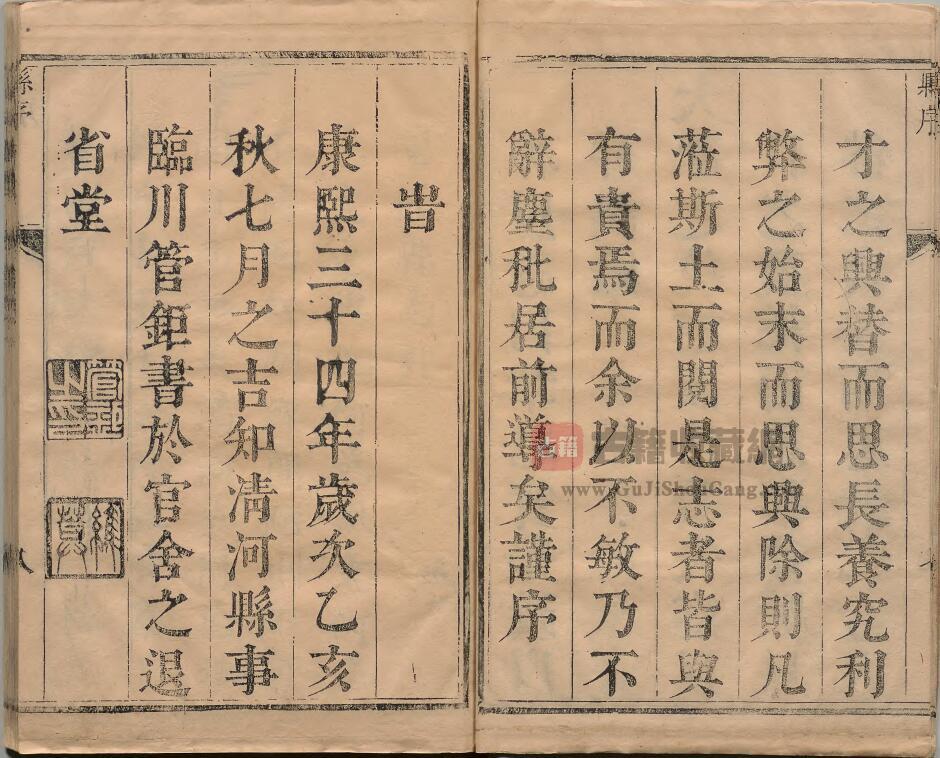 縣序
才之興替而思長養究利
弊之始末而思興除則凡
蒞斯土而閱是志者皆與
有貴焉而余以不敏乃不
辭塵秕居前導矣謹序
旹
康熙三十四年歲次乙亥
秋七月之吉知清河縣事
臨川管鉅書於官舍之退
省堂
縣序
八
古籍
古籍收藏網
www.GuJiShouCang.com